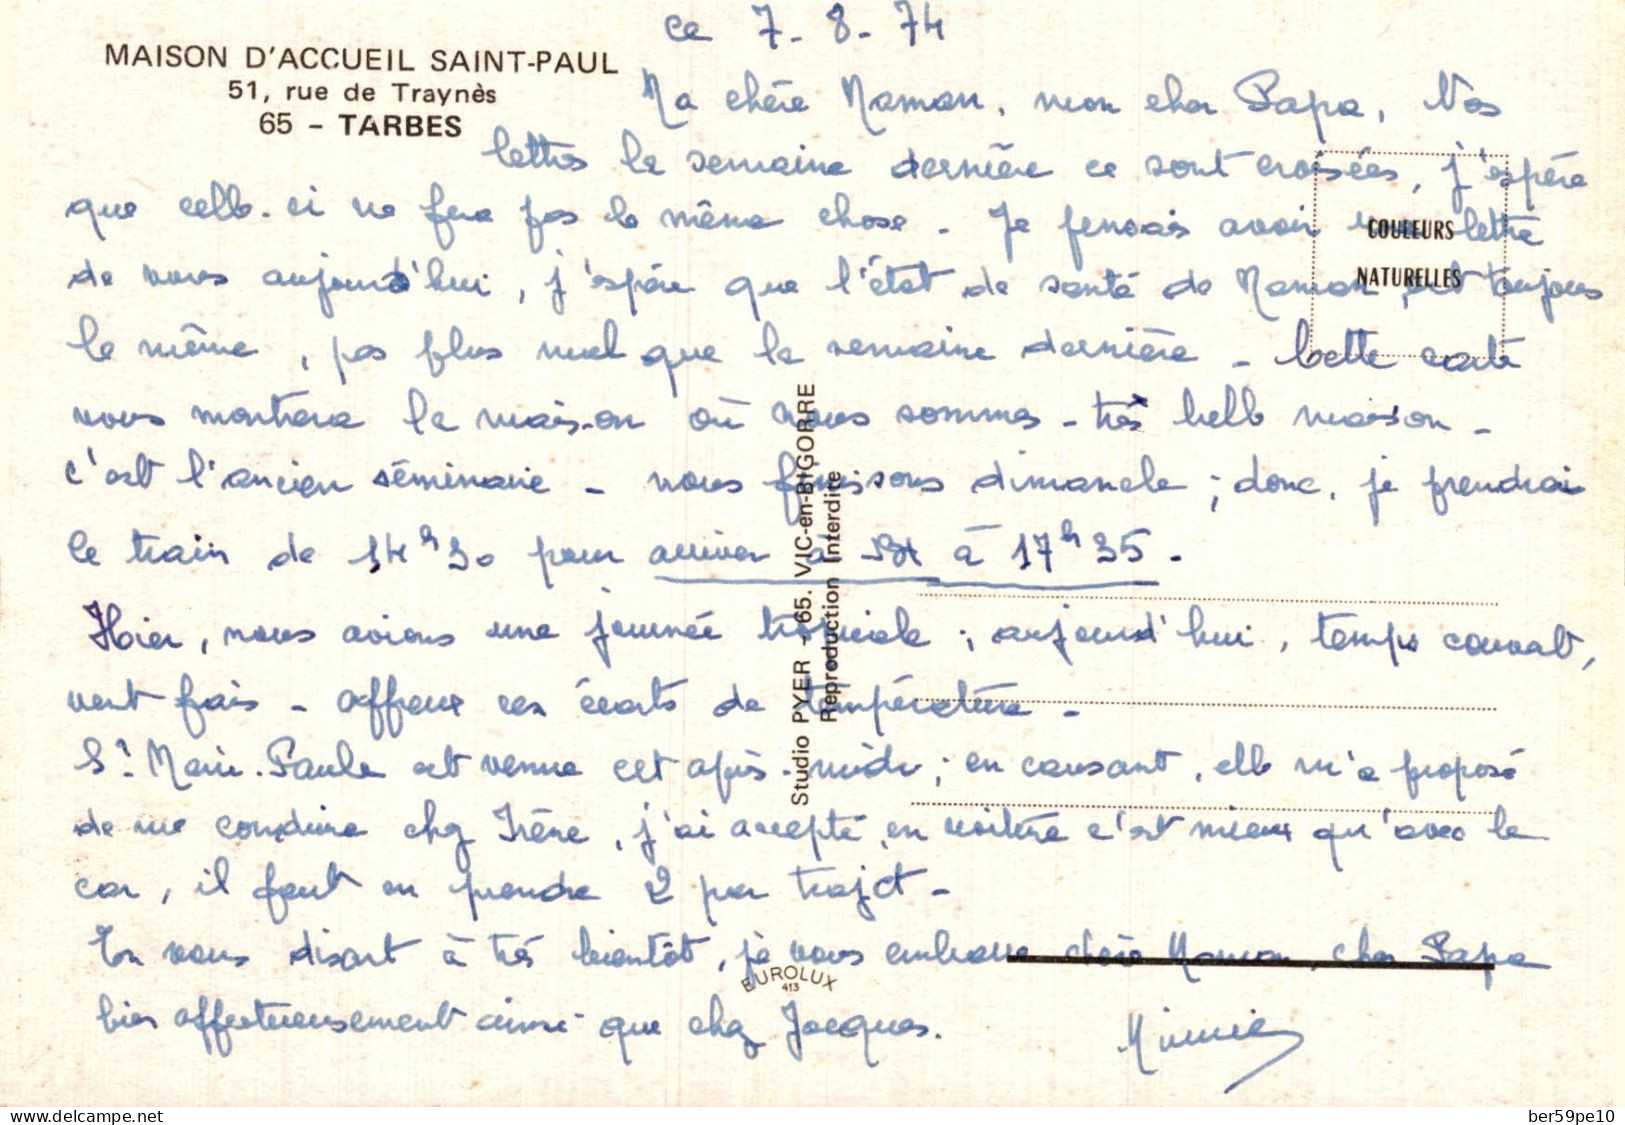 ce 7-8-74
MAISON D'ACCUEIL SAINT-PAUL
51, rue de Traynès
65 - TARBES
Ma chère Maman, mon cher Papa, Nos
lettres la semaine dernière ce sont croisées, j'espère
que celle-ci ne fera pas la même chose - Je pensais avoir une lettre
de vous aujourd'hui, j'espère que l'état de santé de Maman est toujours
le même, pas plus mal que la semaine dernière - Cette carte
vous montrera la maison où nous sommes - très belle maison -
c'est l'ancien séminaire - nous finissons dimanche ; donc, je prendrai
le train de 14h30 pour arriver à à 17h35 -
Hier, nous avions une journée tropicale ; aujourd'hui, temps couvert,
vent frais - affreux ces écarts de température -
Sr Marie-Paule est venue cet après-midi ; en causant, elle m'a proposé
de me conduire chez Irène, j'ai accepté, en voiture c'est mieux qu'avec le
car, il faut en prendre 2 par trajet -
En vous disant à très bientôt, je vous embrasse chère Maman, cher Papa
bien affectueusement ainsi que chez Jacques.
Mimie
COULEURS
NATURELLES
Studio PYER - 65. VIC-en-BIGORRE
Reproduction Interdite
EUROLUX
413
delcampe.net
ber59pe10